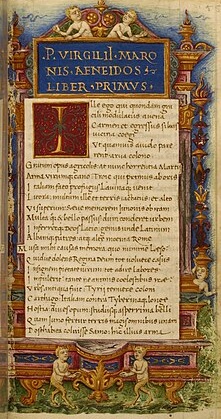 P. VIRGILII. MARO
NIS. AENEIDOS
LIBER PRIMUS
Ille ego qui quondam gra
cili modulatus avena
Carmen et egressus silvis
vicina coegi
Ut quamvis avido pare
rent arva colono
Gratum opus agricolis at nunc horrentia Martis
Arma virumque cano Troie qui primus ab oris
Italiam fato profugus Lavinaque venit
Litora multum ille et terris iactatus et alto
Vi superum seve memorem Junonis ob iram
Multa quoque et bello passus dum conderet urbem
Inferretque Deos Latio genus unde Latinum
Albanique patres atque alte moenia Rome
Musa mihi causas memora quo numine leso
Quidve dolens Regina Deum tot volvere casus
Insignem pietate virum tot adire labores
Impulerit tante ne animis coelestibus ire
Urbs antiqua fuit Tyrii tenuere coloni
Cartago Italiam contra Tyberinaque longe
Hostia dives opum studiisque asperrima belli
Quam Juno fertur terris magis omnibus unam
Posthabita coluisse Samo hic illius arma